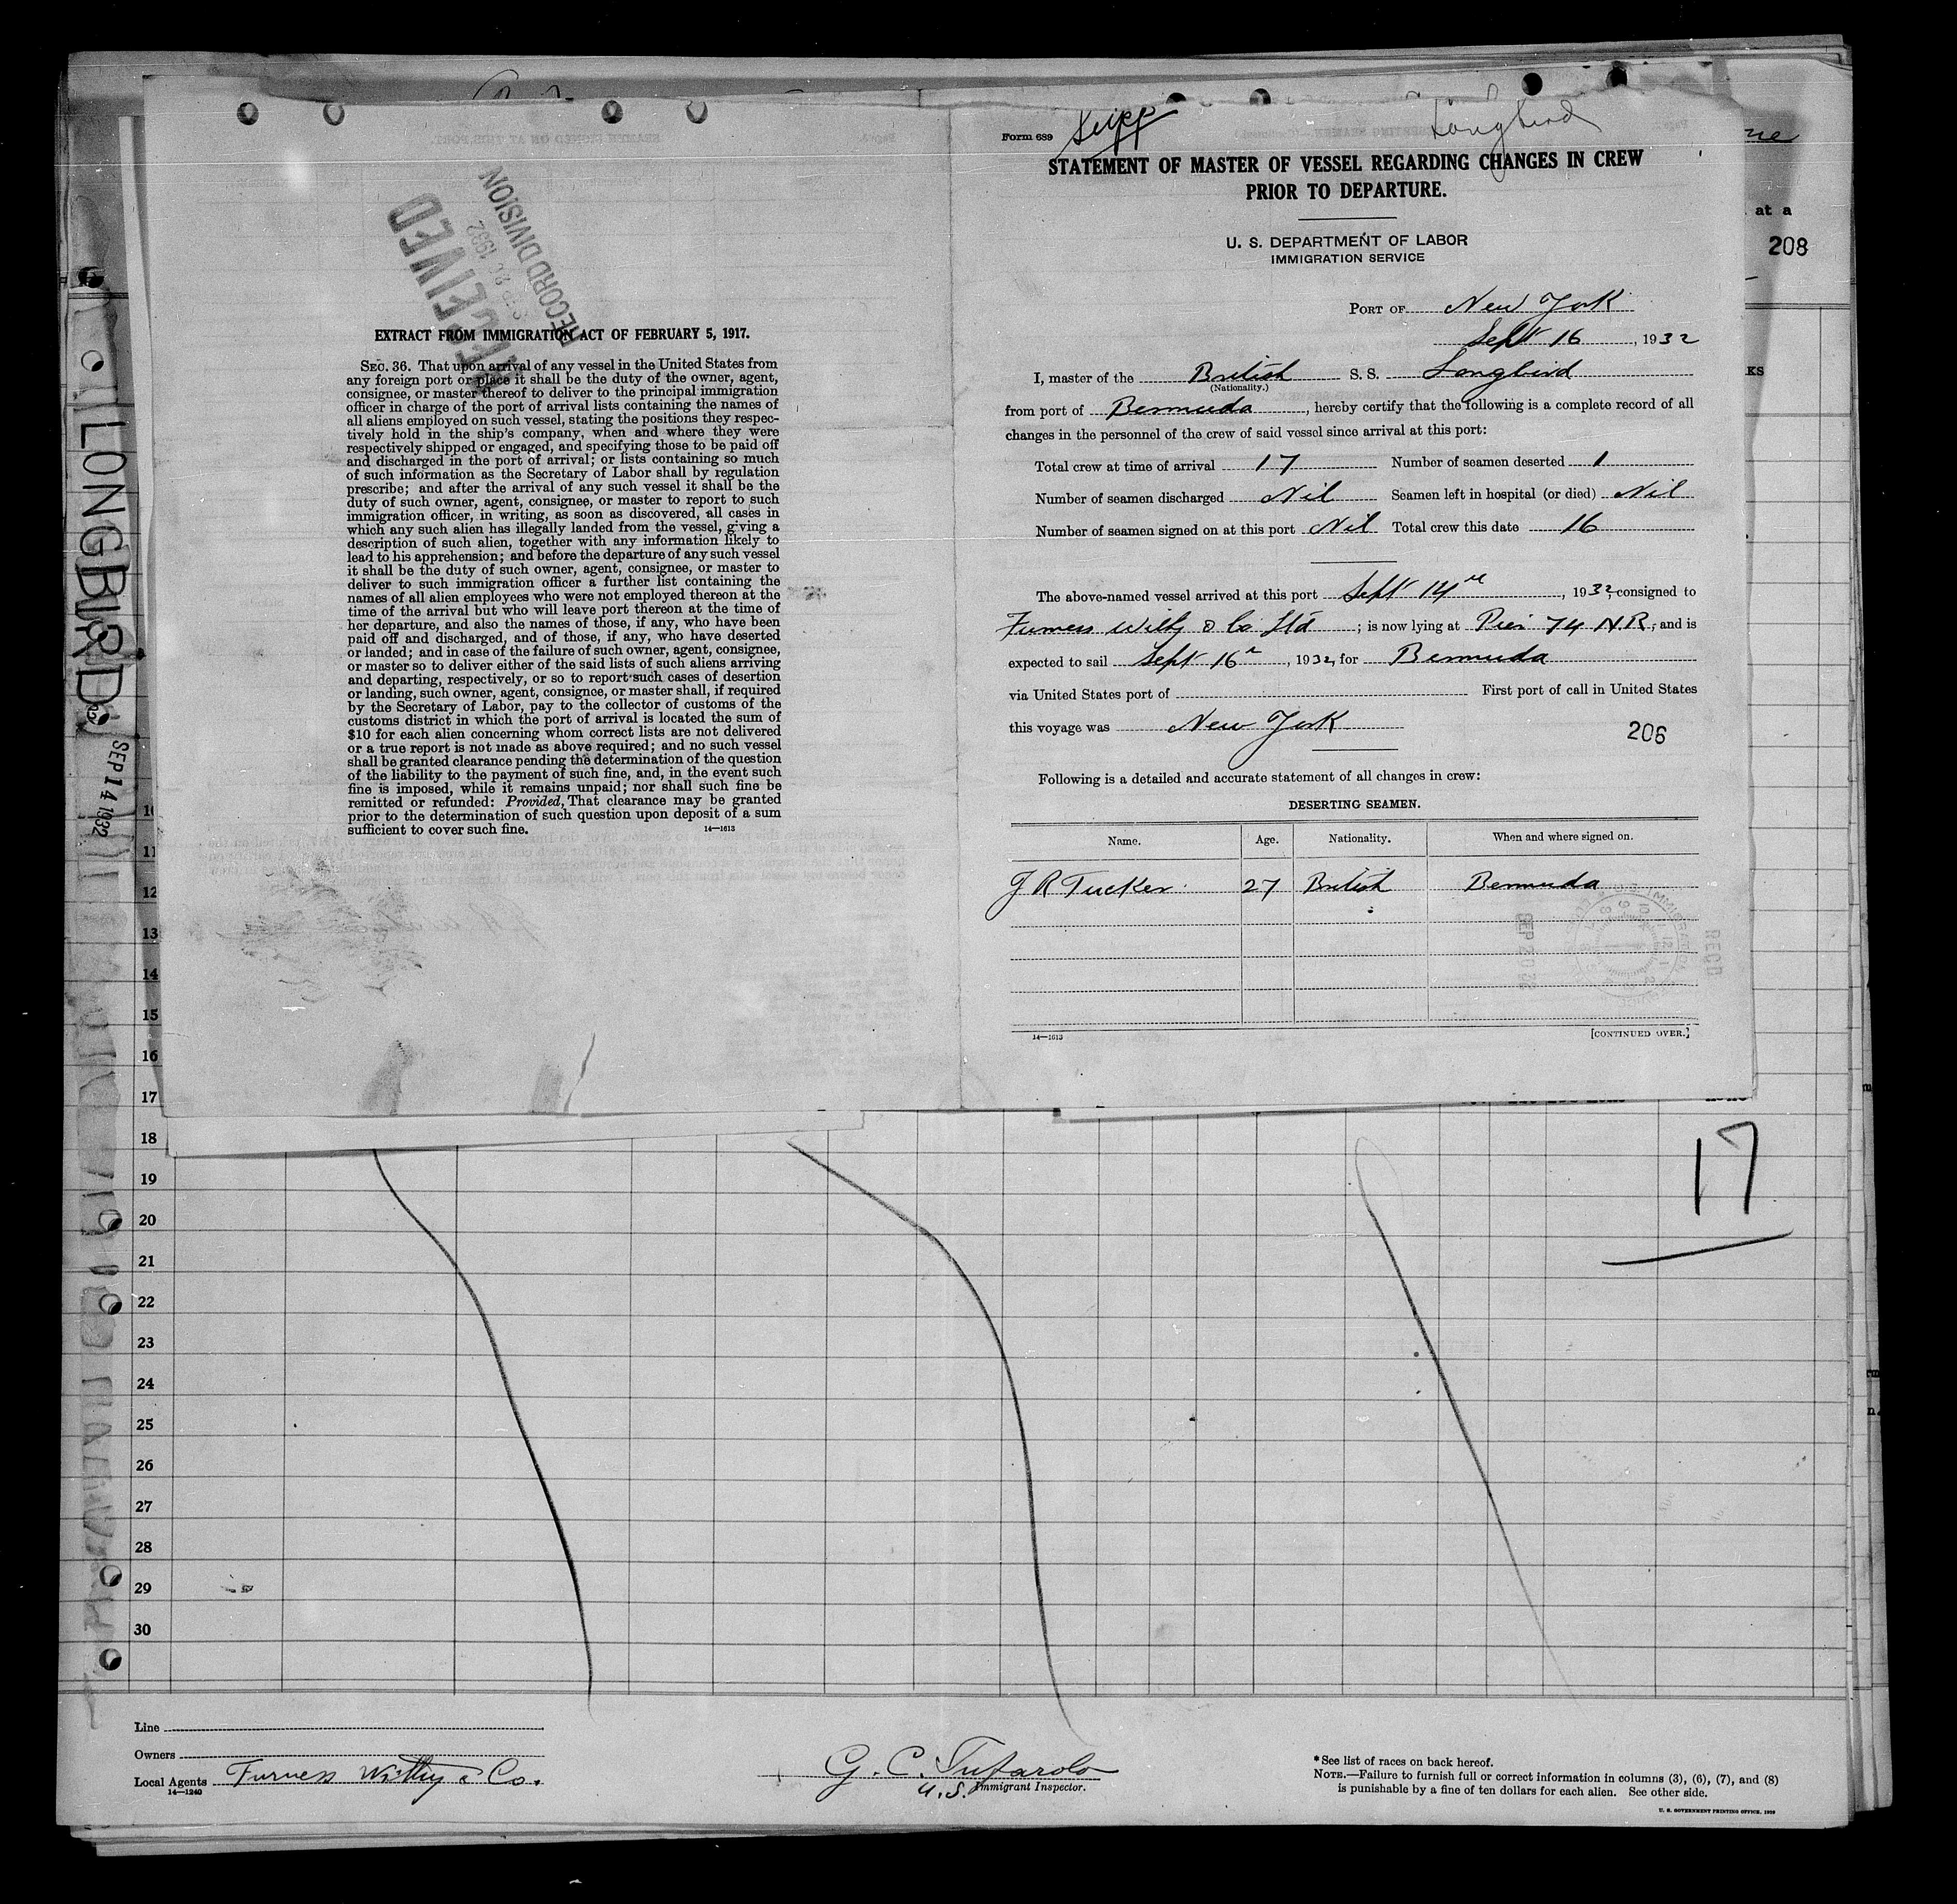 LONGBIRD
SEP 14 1932
RECEIVED
1932
RECORD DIVISION
EXTRACT FROM IMMIGRATION ACT OF FEBRUARY 5, 1917.
SEC. 36. That upon arrival of any vessel in the United States from
any foreign port or place it shall be the duty of the owner, agent,
consignee, or master thereof to deliver to the principal immigration
officer in charge of the port of arrival lists containing the names of
all aliens employed on such vessel, stating the positions they respec-
tively hold in the ship's company, when and where they were
respectively shipped or engaged, and specifying those to be paid off
and discharged in the port of arrival; or lists containing so much
of such information as the Secretary of Labor shall by regulation
prescribe; and after the arrival of any such vessel it shall be the
duty of such owner, agent, consignee, or master to report to such
immigration officer, in writing, as soon as discovered, all cases in
which any such alien has illegally landed from the vessel, giving a
description of such alien, together with any information likely to
lead to his apprehension; and before the departure of any such vessel
it shall be the duty of such owner, agent, consignee, or master to
deliver to such immigration officer a further list containing the
names of all alien employees who were not employed thereon at the
time of the arrival but who will leave port thereon at the time of
her departure, and also the names of those, if any, who have been
paid off and discharged, and of those, if any, who have deserted
or landed; and in case of the failure of such owner, agent, consignee,
or master so to deliver either of the said lists of such aliens arriving
and departing, respectively, or so to report such cases of desertion
or landing, such owner, agent, consignee, or master shall, if required
by the Secretary of Labor, pay to the collector of customs of the
customs district in which the port of arrival is located the sum of
$10 for each alien concerning whom correct lists are not delivered
or a true report is not made as above required; and no such vessel
shall be granted clearance pending the determination of the question
of the liability to the payment of such fine, and, in the event such
fine is imposed, while it remains unpaid; nor shall such fine be
remitted or refunded: Provided, That clearance may be granted
prior to the determination of such question upon deposit of a sum
sufficient to cover such fine. 14—1613
Form 689 Longbird
STATEMENT OF MASTER OF VESSEL REGARDING CHANGES IN CREW
PRIOR TO DEPARTURE.
U. S. DEPARTMENT OF LABOR
IMMIGRATION SERVICE
PORT OF New York
Sept 16, 1932
I, master of the British S. S. Longbird
(Nationality.)
from port of Bermuda, hereby certify that the following is a complete record of all
changes in the personnel of the crew of said vessel since arrival at this port:
Total crew at time of arrival 17 Number of seamen deserted 1
Number of seamen discharged Nil Seamen left in hospital (or died) Nil
Number of seamen signed on at this port Nil Total crew this date 16
The above-named vessel arrived at this port Sept 14, 1932, consigned to
Furness Withy & Co Ltd; is now lying at Pier 74 N.R., and is
expected to sail Sept 16, 1932, for Bermuda
via United States port of First port of call in United States
this voyage was New York
206
Following is a detailed and accurate statement of all changes in crew:
DESERTING SEAMEN.
Name. Age. Nationality. When and where signed on.
J R Tucker 27 British Bermuda
RECD
[CONTINUED OVER.]
14—1613
at a
208
KS
10
11
12
13
14
15
16
17
18
19
20
21
22
23
24
25
26
27
28
29
30
17
Line
Owners
Local Agents Furness Withy & Co.
14—1240
G. C. Tufarolo
U.S. Immigrant Inspector.
*See list of races on back hereof.
NOTE.—Failure to furnish full or correct information in columns (3), (6), (7), and (8)
is punishable by a fine of ten dollars for each alien. See other side.
U. S. GOVERNMENT PRINTING OFFICE, 1929